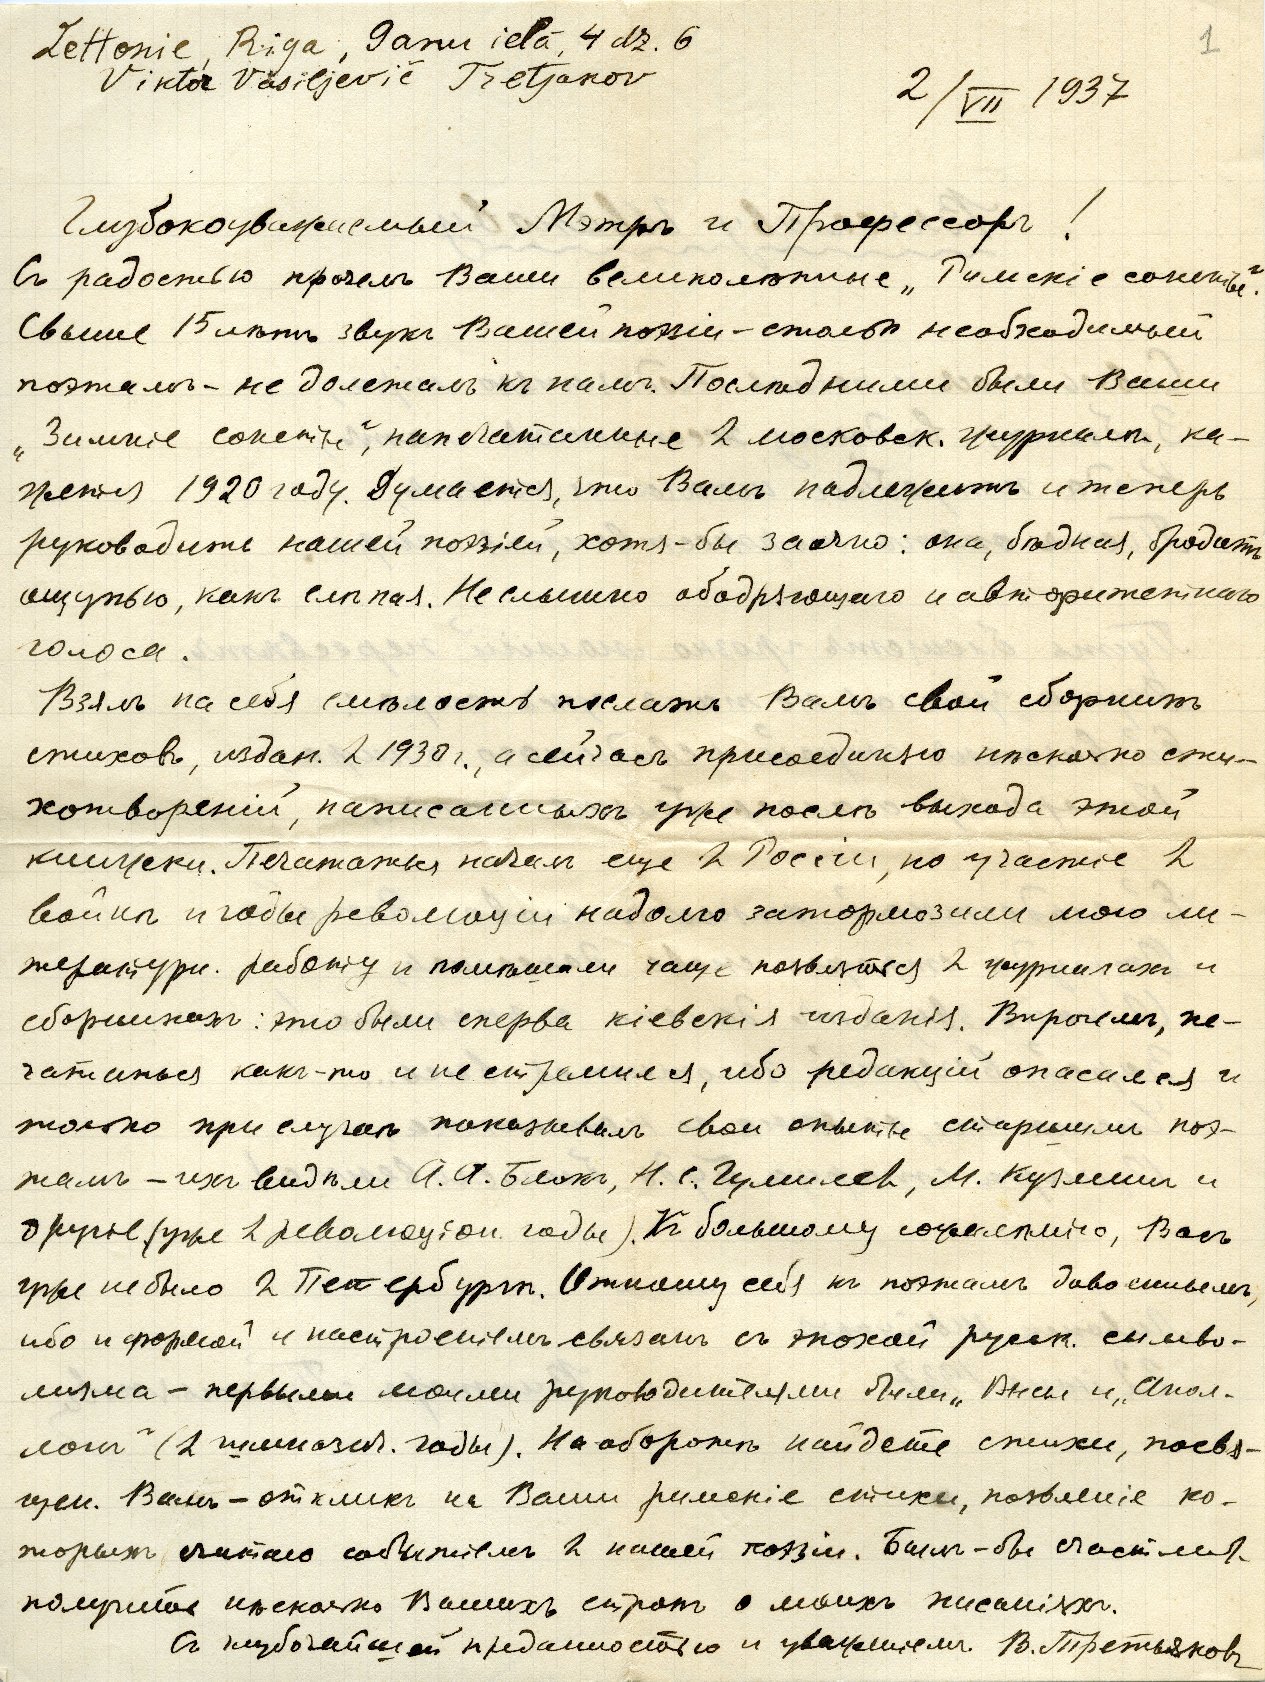 Lettonie, Riga, Ganu ielā, 4 dz. 6
Viktor Vasiljevič Tretjakov
1
2/VII 1937
Глубокоуважаемый Мэтръ и Профессоръ!
Съ радостью прочелъ Ваши великолѣпные „Римскіе сонеты".
Свыше 15 лѣтъ звукъ Вашей поэзіи – столь необходимый
поэтамъ – не долеталъ къ намъ. Послѣдними были Ваши
„Зимніе сонеты", напечатанные в московск. журналѣ, ка-
жется 1920 году. Думается, что Вамъ надлежитъ и теперь
руководить нашей поэзіей, хотя-бы заочно: она, бѣдная, бродитъ
ощупью, какъ слѣпая. Не слышно ободряющаго и авторитетнаго
голоса.
Взялъ на себя смѣлость послать Вамъ свой сборникъ
стиховъ, издан. в 1930 г., а сейчасъ присоединяю нѣсколько сти-
хотвореній, написанныхъ уже послѣ выхода этой
книжки. Печататься началъ еще в Россіи, но участіе в
войнѣ и годы революціи надолго затормозили мою ли-
тературн. работу и помѣшали чаще появляться в журналахъ и
сборникахъ: это были сперва кіевскія изданія. Впрочемъ, пе-
чататься какъ-то и не стремился, ибо редакцій опасался и
только при случаѣ показывалъ свои опыты старшимъ поэ-
тамъ – ихъ видѣли А. А. Блокъ, Н. С. Гумилев, М. Кузмин и
другіе (уже в революціон. годы). Къ большому сожалѣнію, Васъ
уже не было в Петербургѣ. Отношу себя къ поэтамъ довоеннымъ,
ибо и формой и настроеніемъ связанъ съ эпохой русск. симво-
лизма – первыми моими руководителями были „Вѣсы и „Апол-
лонъ" (в гимназич. годы). На оборотѣ найдете стихи, посвя-
щен. Вамъ – откликъ на Ваши римскіе стихи, появленіе ко-
торыхъ считаю событіемъ в нашей поэзіи. Былъ-бы счастлив
получить нѣсколько Вашихъ строкъ о моихъ писаніяхъ.
Съ глубочайшей преданностью и уваженіемъ В. Третьяковъ